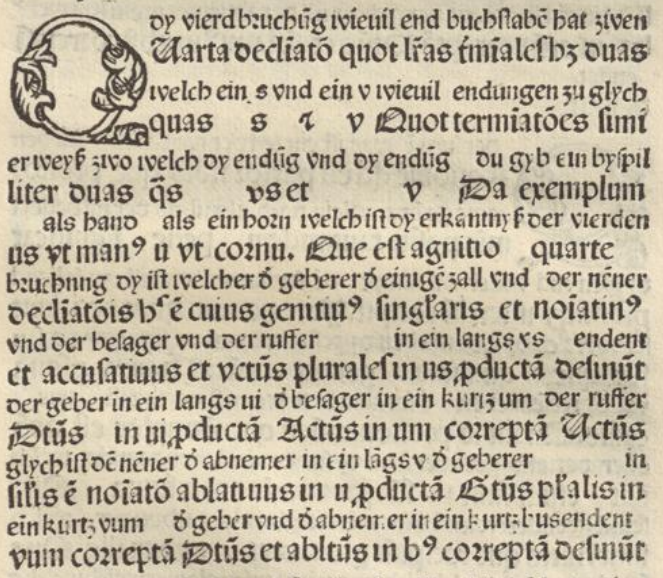 dy vierd bruchũg wieuil end buchstabẽ hat zwen
QUarta decliatõ quot lr̃as tm̃iales hꝫ duas
welch ein s vnd ein v wieuil endungen zu glych
quas s ⁊ v Quot termiatões simi
er weyß zwo welch dy endũg vnd dy endũg du gyb ein byspil
liter duas q̃s vs et v Da exemplum
als hand als ein horn welch ist dy erkantnyß der vierden
us vt manꝰ u vt cornu. Que est agnitio quarte
bruchung dy ist welcher ð geberer ð einigẽ zall vnd der nẽner
decliatõis hˢ ẽ cuius genitiuꝰ singl'aris et noiatiuꝰ
vnd der besager vnd der ruffer in ein langs vs endent
et accusatiuus et vctũs plurales in us ꝓductã desinũt
der geber in ein langs ui ð besager in ein kurtz um der ruffer
Dtũs in ui ꝓductã Actũs in um correptã Uctũs
glych ist dẽ nẽner ð abnemer in ein lãgs v ð geberer in
sil'is ẽ noiatõ ablatiuus in u ꝓductã Gtũs pl'alis in
ein kurtz vum ð geber vnd ð abnemer in ein kurtz bus endent
vum correptã Dtũs et abltũs in bꝰ correptã desinũt